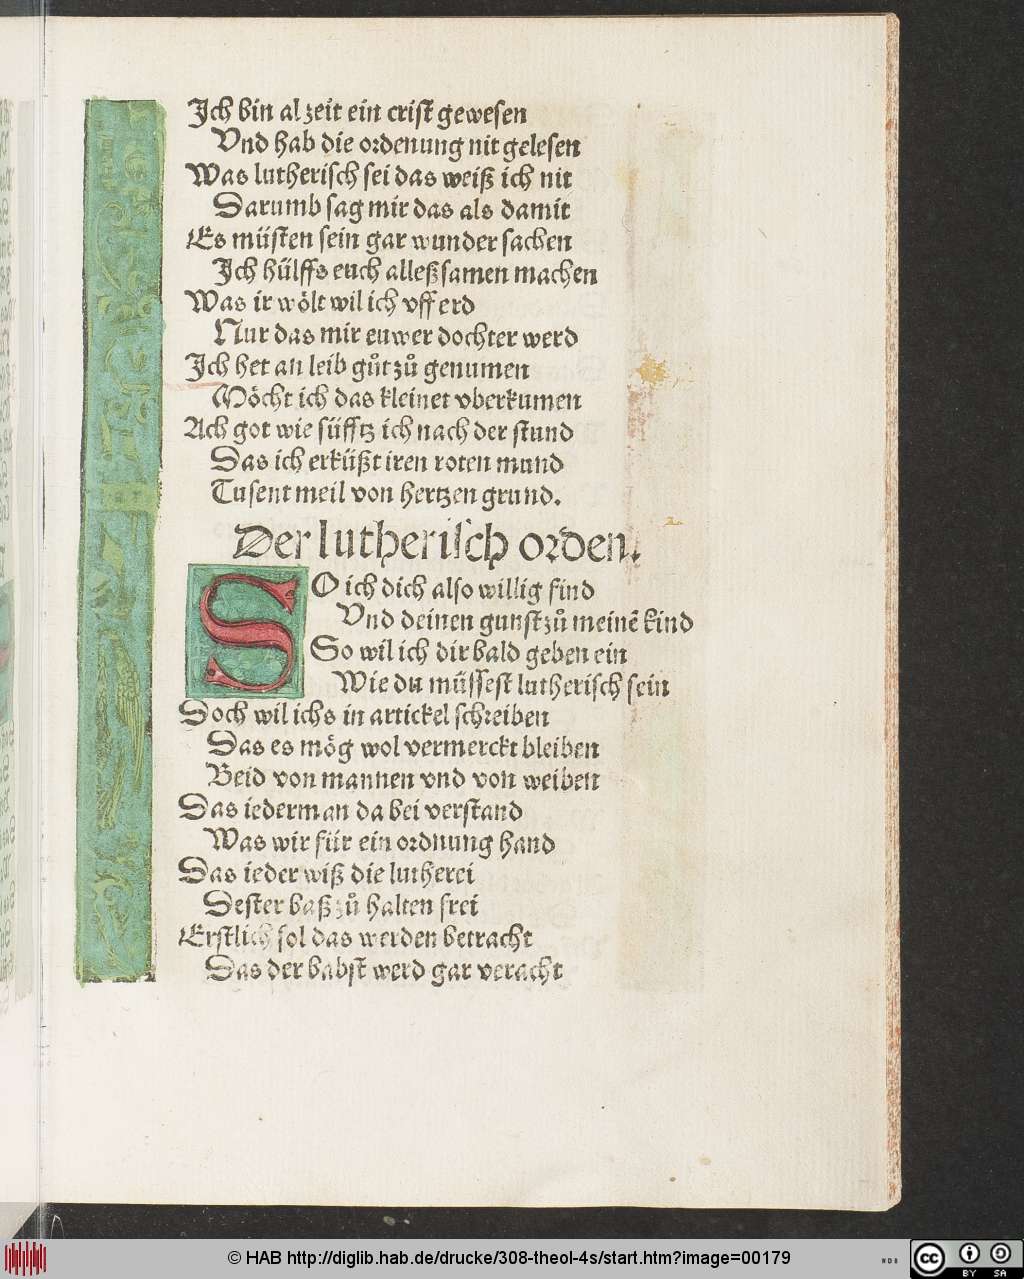 Ich bin al zeit ein crist gewesen
Vnd hab die ordenung nit gelesen
Was lutherisch sei das weiß ich nit
Darumb sag mir das als damit
Es müsten sein gar wunder sachen
Ich hülffs euch alleß samen machen
Was ir wölt wil ich vff erd
Nur das mir euwer dochter werd
Ich het an leib gůt zů genumen
Möcht ich das kleinet vberkumen
Ach got wie süfftz ich nach der stund
Das ich erküßt iren roten mund
Tusent meil von hertzen grund.
Der lutherisch orden.
SO ich dich also willig find
Vnd deinen gunst zů meinē kind
So wil ich dir bald geben ein
Wie du müssest lutherisch sein
Doch wil ichs in artickel schreiben
Das es mög wol vermerckt bleiben
Beid von mannen vnd von weiben
Das iederman da bei verstand
Was wir für ein ordnung hand
Das ieder wiß die lutherei
Dester baß zů halten frei
Erstlich sol das werden betracht
Das der babst werd gar veracht
© HAB http://diglib.hab.de/drucke/308-theol-4s/start.htm?image=00179
WDB
cc BY SA